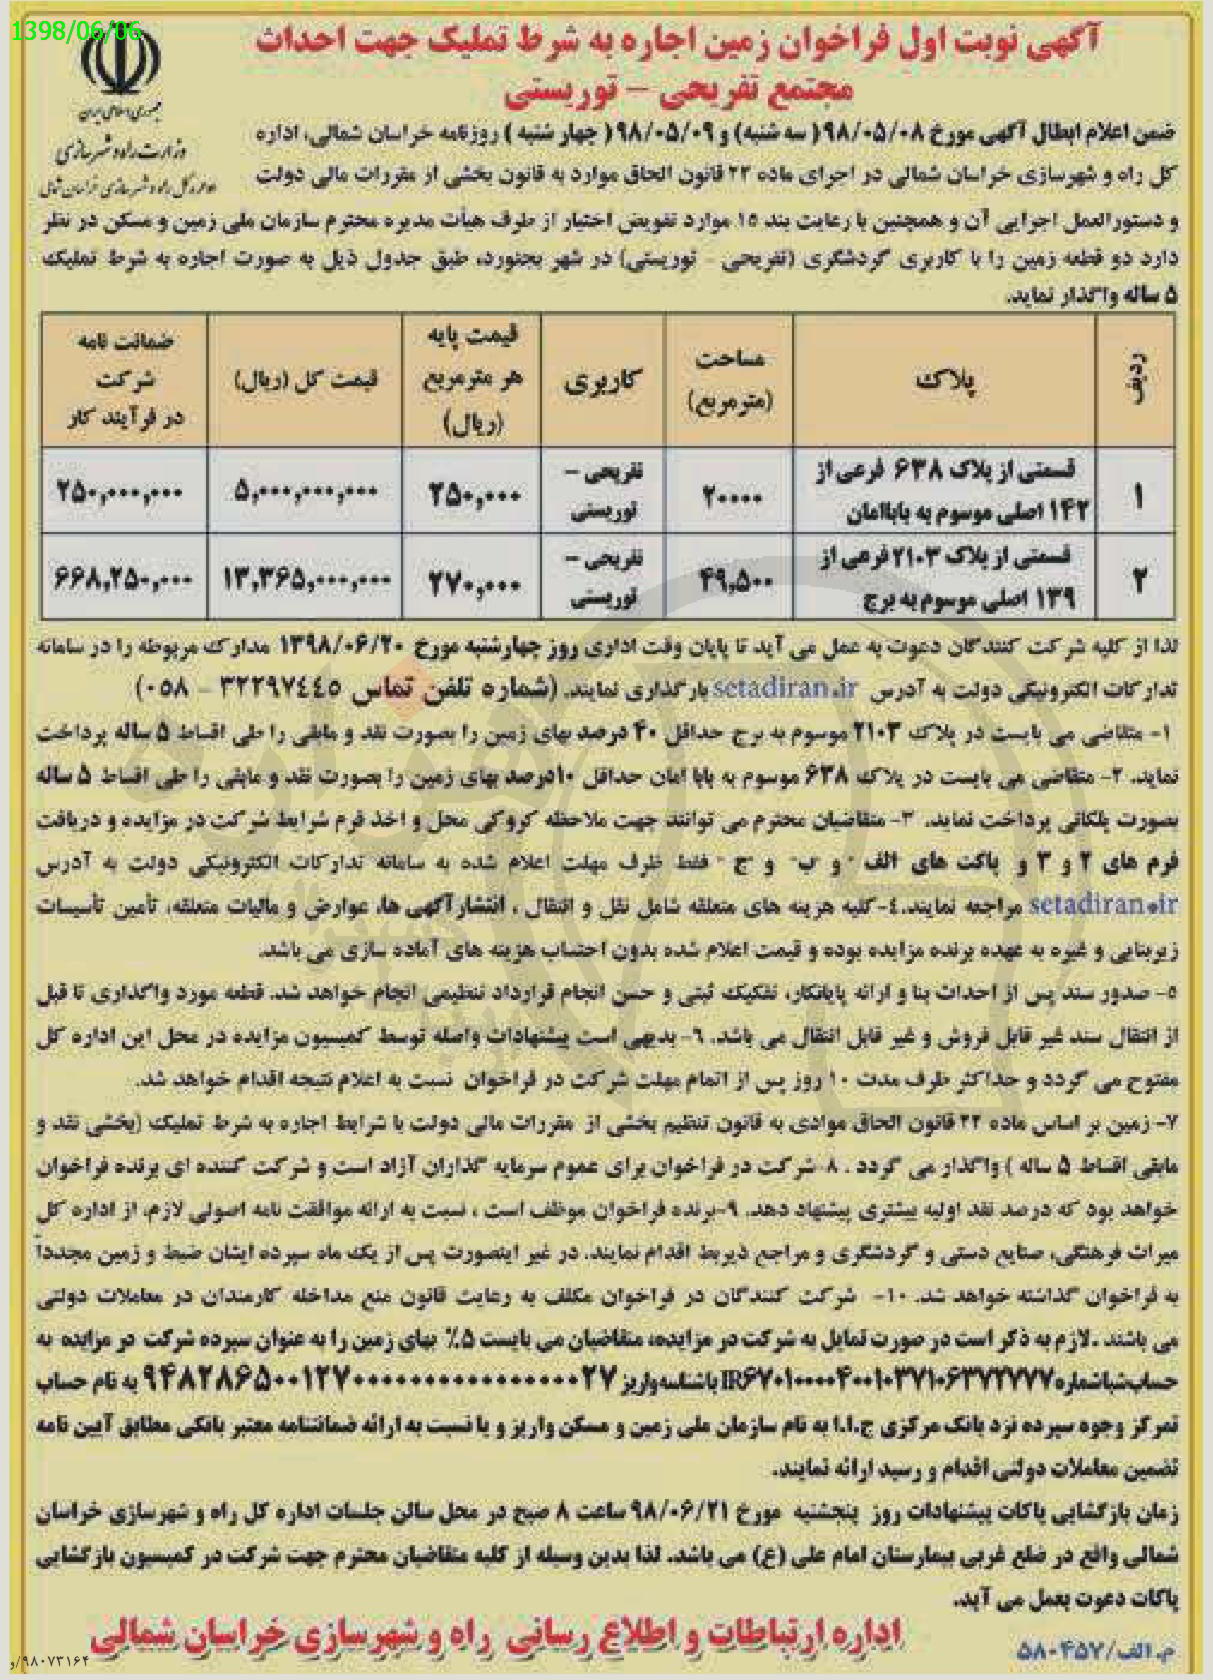 1398/06/06
آگهی نوبت اول فراخوان زمین اجاره به شرط تملیک جهت احداث
مجتمع تفریحی - توریستی
جمهوری اسلامی ایران
وزارت راه و شهرسازی
اداره کل راه و شهرسازی خراسان شمالی
ضمن اعلام ابطال آگهی مورخ ۹۸/۰۵/۰۸( سه شنبه) و ۹۸/۰۵/۰۹( چهار شنبه ) روزنامه خراسان شمالی، اداره
کل راه و شهرسازی خراسان شمالی در اجرای ماده ۲۳ قانون الحاق موارد به قانون بخشی از مقررات مالی دولت
و دستورالعمل اجرایی آن و همچنین با رعایت بند ۱۵ موارد تفویض اختیار از طرف هیأت مدیره محترم سازمان ملی زمین و مسکن در نظر
دارد دو قطعه زمین را با کاربری گردشگری (تفریحی - توریستی) در شهر بجنورد، طبق جدول ذیل به صورت اجاره به شرط تملیک
۵ ساله واگذار نماید.
ردیف
پلاک
مساحت (مترمربع)
کاربری
قیمت پایه هر مترمربع (ریال)
قیمت کل (ریال)
ضمانت نامه شرکت در فرآیند کار
۱
قسمتی از پلاک ۶۳۸ فرعی از
۱۴۲ اصلی موسوم به باباامان
۲۰۰۰۰
تفریحی – توریستی
۲۵۰,۰۰۰
۵,۰۰۰,۰۰۰,۰۰۰
۲۵۰,۰۰۰,۰۰۰
۲
قسمتی از پلاک ۲۱۰۳ فرعی از
۱۳۹ اصلی موسوم به برج
۴۹,۵۰۰
تفریحی – توریستی
۲۷۰,۰۰۰
۱۳,۳۶۵,۰۰۰,۰۰۰
۶۶۸,۲۵۰,۰۰۰
لذا از کلیه شرکت کنندگان دعوت به عمل می آید تا پایان وقت اداری روز چهارشنبه مورخ ۱۳۹۸/۰۶/۲۰ مدارک مربوطه را در سامانه
تدارکات الکترونیکی دولت به آدرس setadiran.ir بارگذاری نمایند. (شماره تلفن تماس ۳۲۲۹۷٤٤٥ - ۰۵۸)
۱- متقاضی می بایست در پلاک ۲۱۰۳ موسوم به برج حداقل ۴۰ درصد بهای زمین را بصورت نقد و مابقی را طی اقساط ۵ ساله پرداخت
نماید. ۲- متقاضی می بایست در پلاک ۶۳۸ موسوم به بابا امان حداقل ۱۰درصد بهای زمین را بصورت نقد و مابقی را طی اقساط ۵ ساله
بصورت پلکانی پرداخت نماید. ۳- متقاضیان محترم می توانند جهت ملاحظه کروکی محل و اخذ فرم شرایط شرکت در مزایده و دریافت
فرم های ۲ و ۳ و پاکت های الف " و ب" و "ج " فقط ظرف مهلت اعلام شده به سامانه تدارکات الکترونیکی دولت به آدرس
setadiran.ir مراجعه نمایند.٤-کلیه هزینه های متعلقه شامل نقل و انتقال ، انتشار آگهی ها، عوارض و مالیات متعلقه، تأمین تأسیسات
زیربنایی و غیره به عهده برنده مزایده بوده و قیمت اعلام شده بدون احتساب هزینه های آماده سازی می باشد.
۵- صدور سند پس از احداث بنا و ارائه پایانکار، تفکیک ثبتی و حسن انجام قرارداد تنظیمی انجام خواهد شد. قطعه مورد واگذاری تا قبل
از انتقال سند غیر قابل فروش و غیر قابل انتقال می باشد. ٦- بدیهی است پیشنهادات واصله توسط کمیسیون مزایده در محل این اداره کل
مفتوح می گردد و حداکثر ظرف مدت ۱۰ روز پس از اتمام مهلت شرکت در فراخوان نسبت به اعلام نتیجه اقدام خواهد شد.
۷- زمین بر اساس ماده ۲۳ قانون الحاق موادی به قانون تنظیم بخشی از مقررات مالی دولت با شرایط اجاره به شرط تملیک (بخشی نقد و
مابقی اقساط ۵ ساله ) واگذار می گردد . ۸- شرکت در فراخوان برای عموم سرمایه گذاران آزاد است و شرکت کننده ای برنده فراخوان
خواهد بود که درصد نقد اولیه بیشتری پیشنهاد دهد. ۹-برنده فراخوان موظف است ، نسبت به ارائه موافقت نامه اصولی لازم، از اداره کل
میراث فرهنگی، صنایع دستی و گردشگری و مراجع ذیربط اقدام نمایند. در غیر اینصورت پس از یک ماه سپرده ایشان ضبط و زمین مجدداً
به فراخوان گذاشته خواهد شد. ۱۰- شرکت کنندگان در فراخوان مکلف به رعایت قانون منع مداخله کارمندان در معاملات دولتی
می باشند .لازم به ذکر است در صورت تمایل به شرکت در مزایده، متقاضیان می بایست ۵٪ بهای زمین را به عنوان سپرده شرکت در مزایده به
حساب شبا شماره IR۶۷۰۱۰۰۰۰۴۰۰۱۰۳۷۱۰۶۳۷۲۷۷۷ با شناسه واریز ۹۴۸۲۸۶۵۰۰۱۲۷۰۰۰۰۰۰۰۰۰۰۰۰۰۰۰۰۲۷ به نام حساب
تمرکز وجوه سپرده نزد بانک مرکزی ج.ا.ا به نام سازمان ملی زمین و مسکن واریز و یا نسبت به ارائه ضمانتنامه معتبر بانکی مطابق آیین نامه
تضمین معاملات دولتی اقدام و رسید ارائه نمایند.
زمان بازگشایی پاکات پیشنهادات روز پنجشنبه مورخ ۹۸/۰۶/۲۱ ساعت ۸ صبح در محل سالن جلسات اداره کل راه و شهرسازی خراسان
شمالی واقع در ضلع غربی بیمارستان امام علی (ع) می باشد. لذا بدین وسیله از کلیه متقاضیان محترم جهت شرکت در کمیسیون بازگشایی
پاکات دعوت بعمل می آید.
اداره ارتباطات و اطلاع رسانی راه و شهرسازی خراسان شمالی
م.الف/۵۸۰۴۵۷
۹۸۰۷۳۱۶۴/و